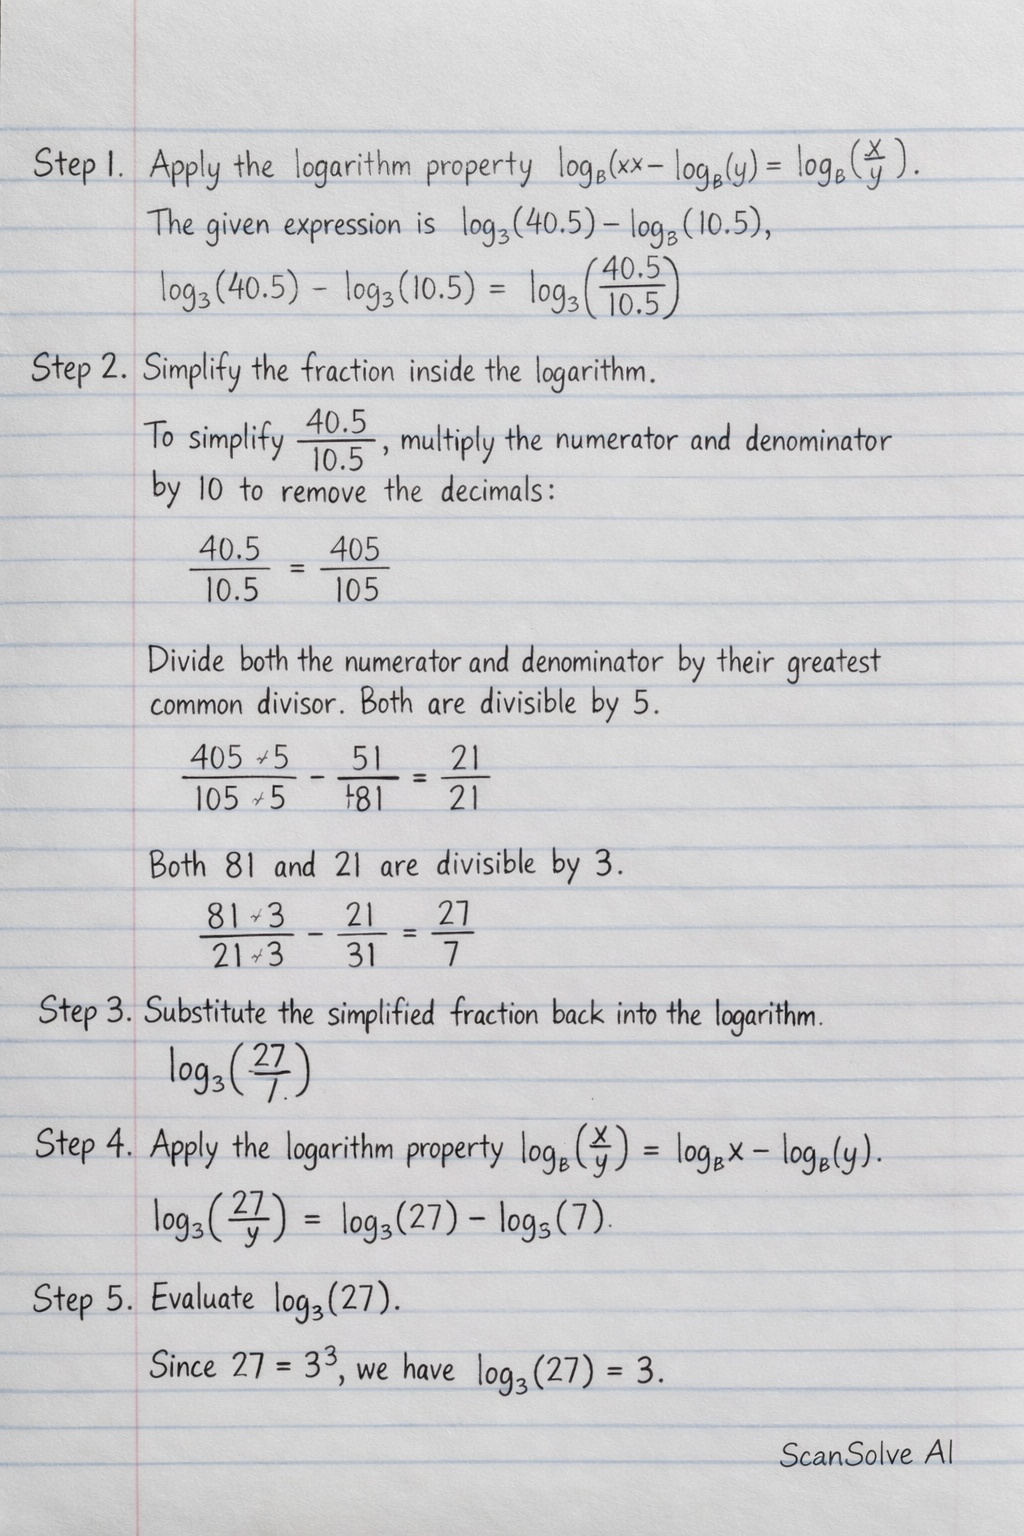 Step 1. Apply the logarithm property log_B(xx − log_B(y) = log_B(x/y).
The given expression is log_3(40.5) − log_B(10.5),
log_3(40.5) − log_3(10.5) = log_3(40.5/10.5)
Step 2. Simplify the fraction inside the logarithm.
To simplify 40.5/10.5, multiply the numerator and denominator
by 10 to remove the decimals:
40.5/10.5 = 405/105
Divide both the numerator and denominator by their greatest
common divisor. Both are divisible by 5.
405 ÷ 5/105 ÷ 5 − 51/+81 = 21/21
Both 81 and 21 are divisible by 3.
81 ÷ 3/21 ÷ 3 − 21/31 = 27/7
Step 3. Substitute the simplified fraction back into the logarithm.
log_3(27/7.)
Step 4. Apply the logarithm property log_B(x/y) = log_B x − log_B(y).
log_3(27/y) = log_3(27) − log_5(7).
Step 5. Evaluate log_3(27).
Since 27 = 3³, we have log_3(27) = 3.
ScanSolve AI